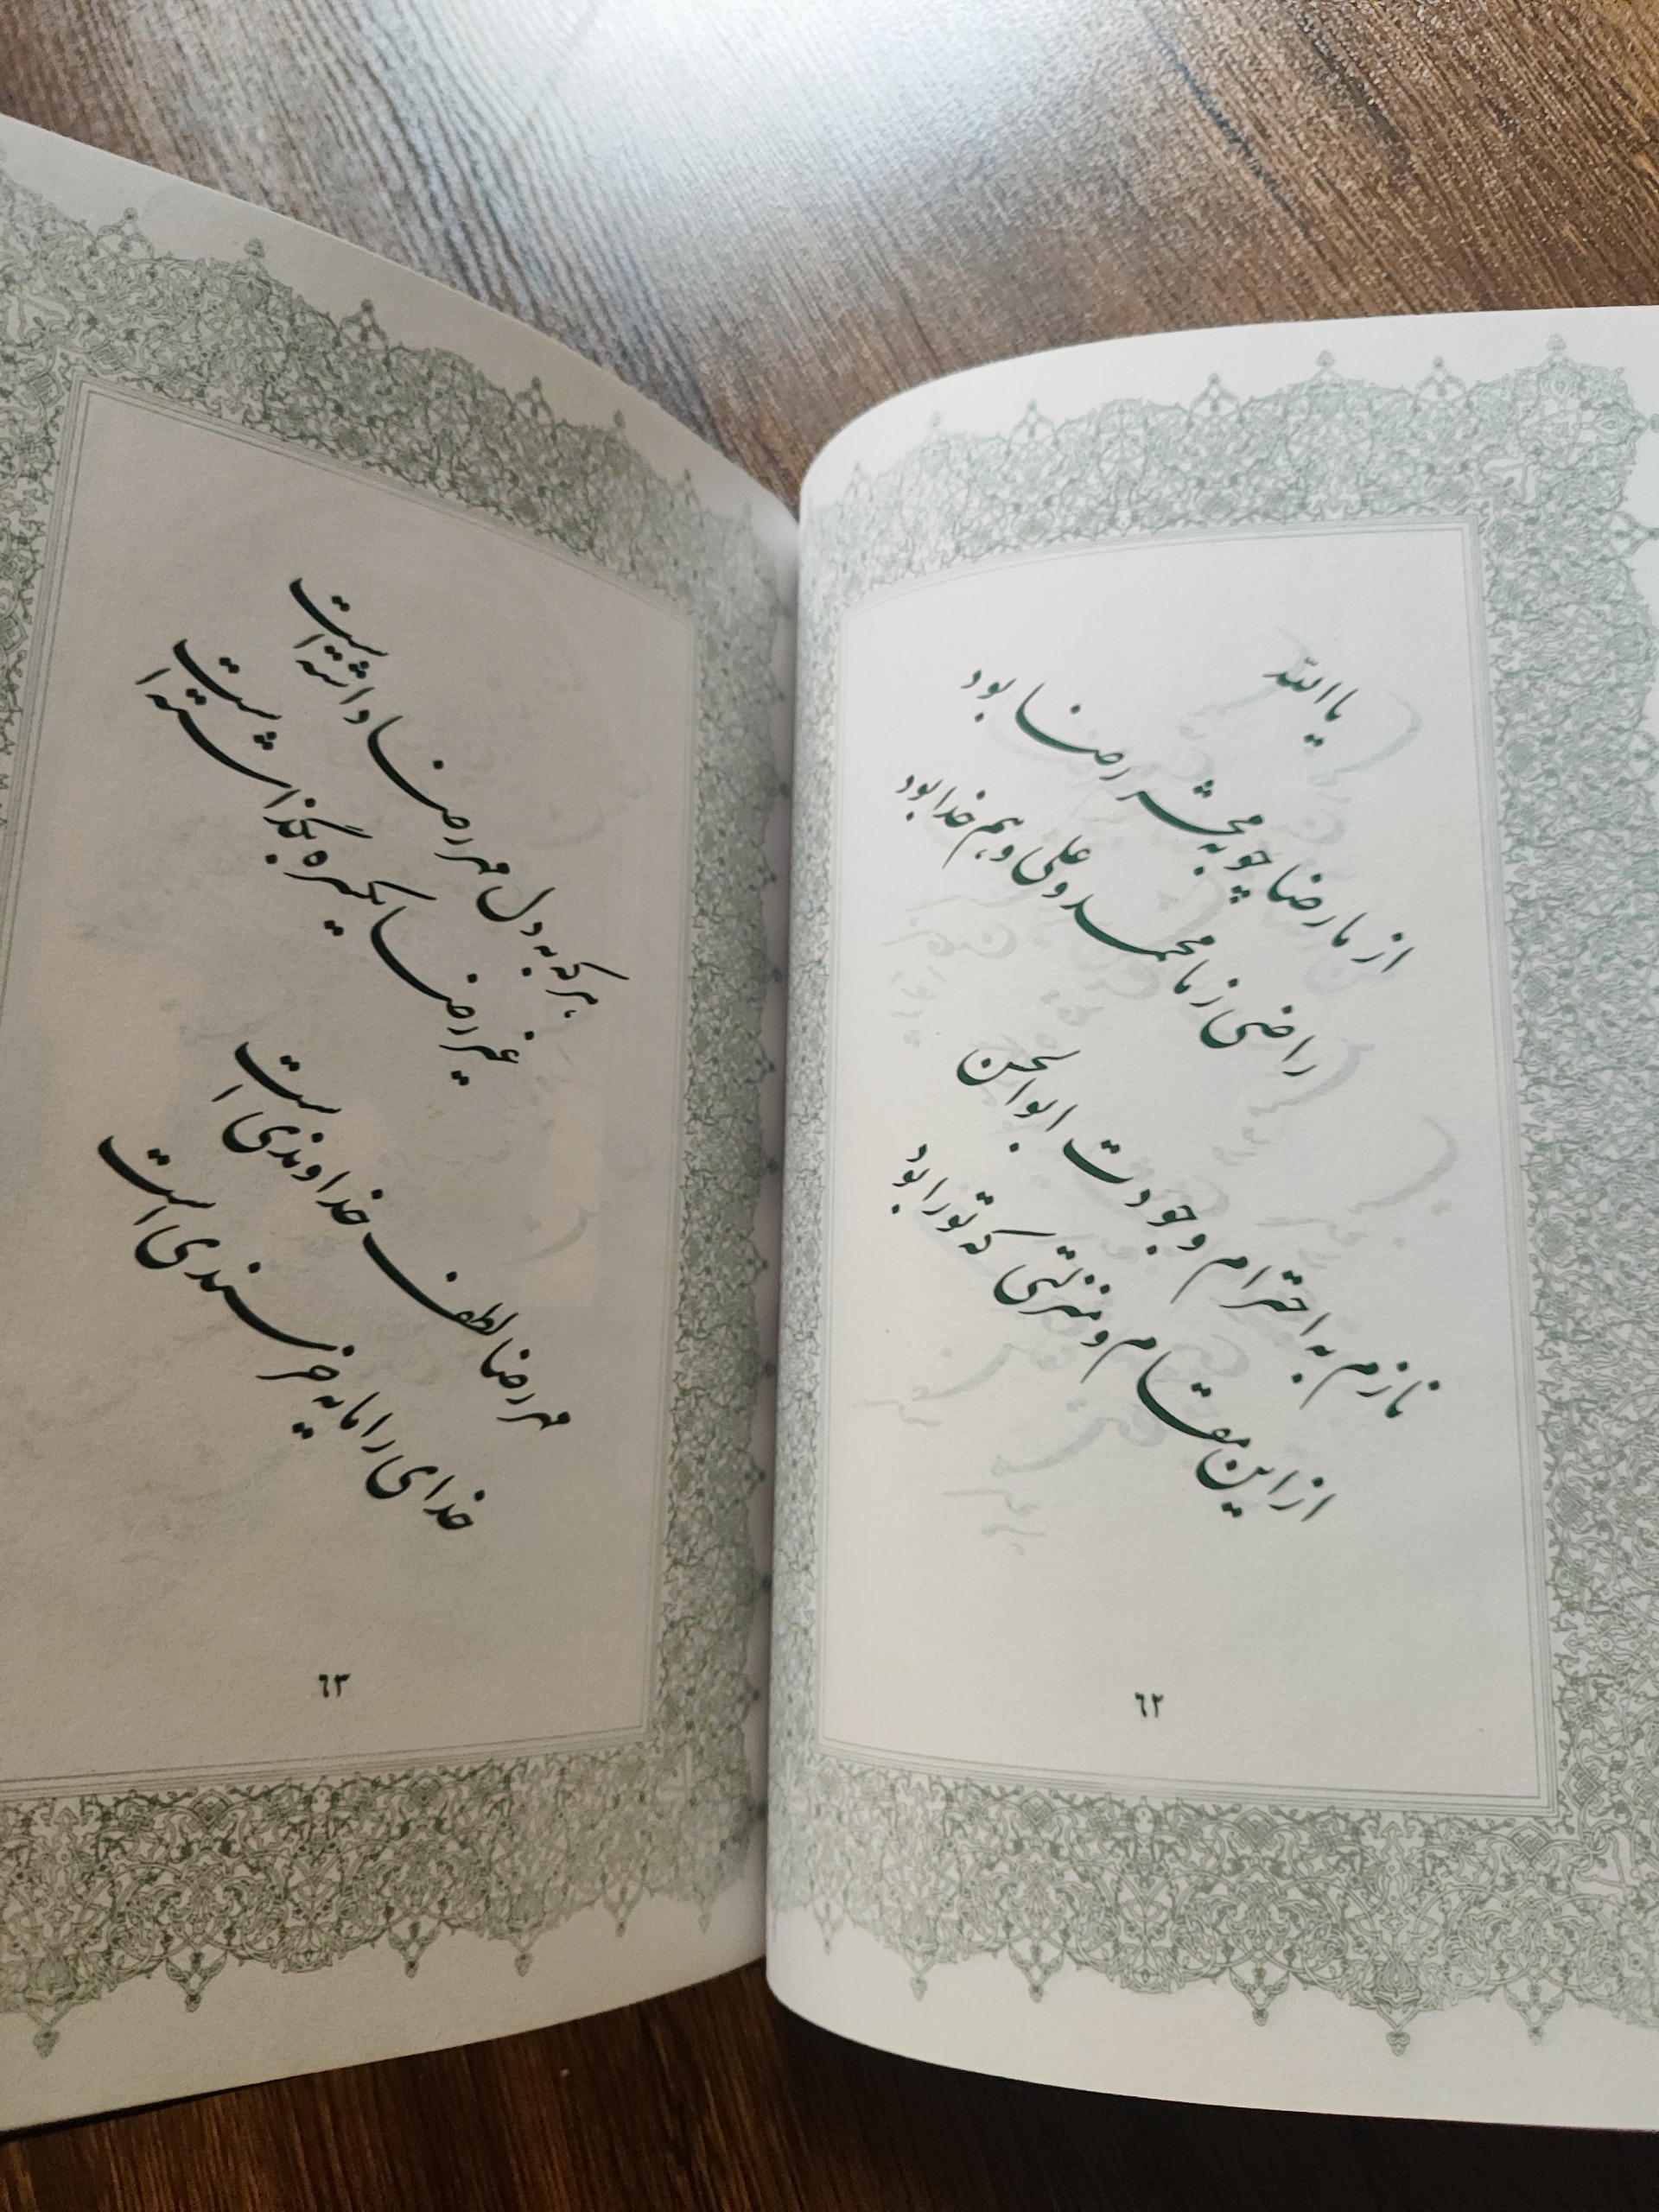 یا الله
از ما رضا چو به محشر رضا بود
راضی ز ما محمد و علی و هم خدا بود
نازم به احترام وجودت ابوالحسن
از این مقام و منزلتی که تو را بود
٦٢
هر که به دل مهر رضا داشته است
غیر رضا یکسره بگذاشته است
مهر رضا لطف خداوندی است
خدای را مایه خرسندی است
٦٣